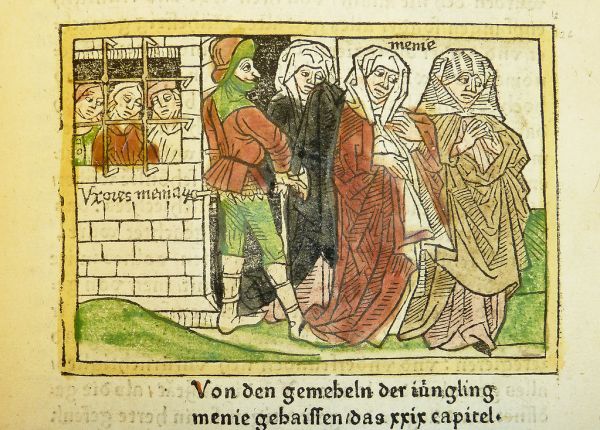 menie
Vxores meniaꝝ
Von den gemeheln der iüngling
menie gehaissen/das xxix capitel.